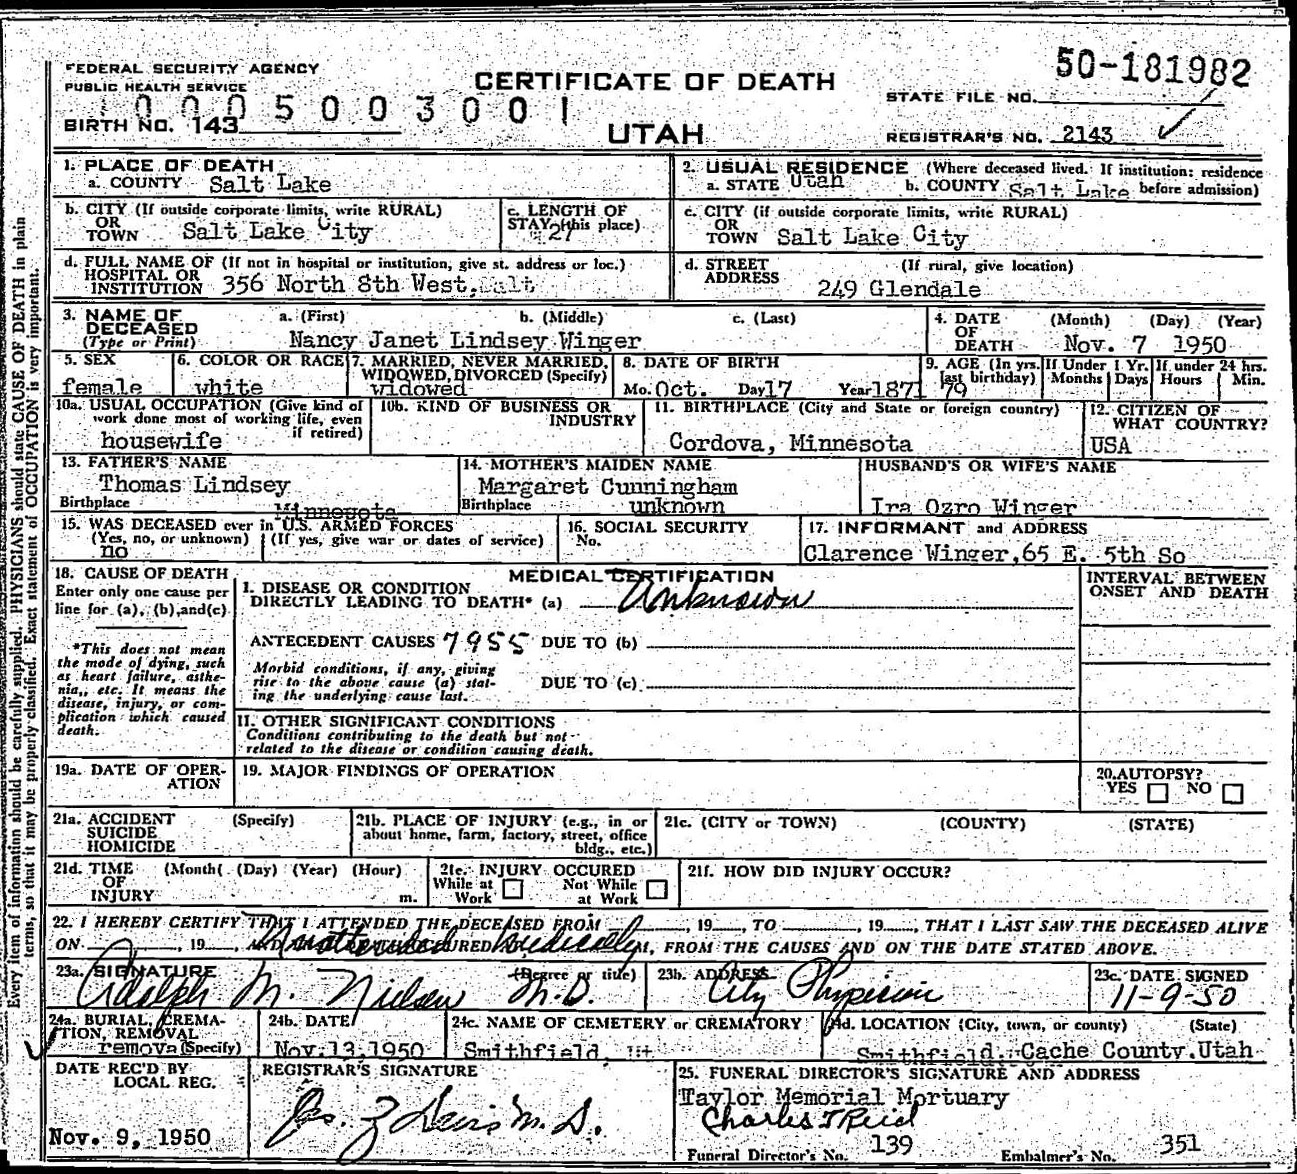 FEDERAL SECURITY AGENCY
PUBLIC HEALTH SERVICE
0005003001
BIRTH NO. 143
CERTIFICATE OF DEATH
UTAH
50-181982
STATE FILE NO.
REGISTRAR'S NO. 2143
Every item of information should be carefully supplied. PHYSICIANS should state CAUSE OF DEATH in plain
terms, so that it may be properly classified. Exact statement of OCCUPATION is very important.
1. PLACE OF DEATH
a. COUNTY Salt Lake
2. USUAL RESIDENCE (Where deceased lived. If institution: residence
a. STATE Utah b. COUNTY Salt Lake before admission)
b. CITY (If outside corporate limits, write RURAL)
OR
TOWN Salt Lake City
c. LENGTH OF
STAY (this place)
27
c. CITY (if outside corporate limits, write RURAL)
OR
TOWN Salt Lake City
d. FULL NAME OF (If not in hospital or institution, give st. address or loc.)
HOSPITAL OR
INSTITUTION 356 North 8th West, Salt
d. STREET (If rural, give location)
ADDRESS
249 Glendale
3. NAME OF
DECEASED
(Type or Print)
a. (First) b. (Middle) c. (Last)
Nancy Janet Lindsey Winger
4. DATE (Month) (Day) (Year)
OF
DEATH Nov. 7 1950
5. SEX
female
6. COLOR OR RACE
white
7. MARRIED, NEVER MARRIED,
WIDOWED, DIVORCED (Specify)
widowed
8. DATE OF BIRTH
Mo. Oct. Day 17 Year 1871
9. AGE (In yrs.
last birthday)
79
If Under 1 Yr.
Months Days
If under 24 hrs.
Hours Min.
10a. USUAL OCCUPATION (Give kind of
work done most of working life, even
if retired)
housewife
10b. KIND OF BUSINESS OR
INDUSTRY
11. BIRTHPLACE (City and State or foreign country)
Cordova, Minnesota
12. CITIZEN OF
WHAT COUNTRY?
USA
13. FATHER'S NAME
Thomas Lindsey
Birthplace Minnesota
14. MOTHER'S MAIDEN NAME
Margaret Cunningham
Birthplace unknown
HUSBAND'S OR WIFE'S NAME
Ira Ozro Winger
15. WAS DECEASED ever in U.S. ARMED FORCES
(Yes, no, or unknown) (If yes, give war or dates of service)
no
16. SOCIAL SECURITY
No.
17. INFORMANT and ADDRESS
Clarence Winger, 65 E. 5th So
18. CAUSE OF DEATH
Enter only one cause per
line for (a), (b), and (c)
*This does not mean
the mode of dying, such
as heart failure, asthe-
nia,, etc. It means the
disease, injury, or com-
plication which caused
death.
MEDICAL CERTIFICATION
I. DISEASE OR CONDITION
DIRECTLY LEADING TO DEATH* (a) Unknown
ANTECEDENT CAUSES 7955 DUE TO (b)
Morbid conditions, if any, giving
rise to the above cause (a) stat-
ing the underlying cause last.
DUE TO (c)
II. OTHER SIGNIFICANT CONDITIONS
Conditions contributing to the death but not
related to the disease or condition causing death.
INTERVAL BETWEEN
ONSET AND DEATH
19a. DATE OF OPER-
ATION
19. MAJOR FINDINGS OF OPERATION
20. AUTOPSY?
YES NO
21a. ACCIDENT (Specify)
SUICIDE
HOMICIDE
21b. PLACE OF INJURY (e.g., in or
about home, farm, factory, street, office
bldg., etc.)
21c. (CITY or TOWN) (COUNTY) (STATE)
21d. TIME (Month( (Day) (Year) (Hour)
OF
INJURY m.
21e. INJURY OCCURED
While at Work Not While at Work
21f. HOW DID INJURY OCCUR?
22. I HEREBY CERTIFY THAT I ATTENDED THE DECEASED FROM , 19 , TO , 19 , THAT I LAST SAW THE DECEASED ALIVE
ON , 19 , AND OCCURED M, FROM THE CAUSES AND ON THE DATE STATED ABOVE.
Unattended medically
23a. SIGNATURE (Degree or title)
Adolph M. Nielsen M.D.
23b. ADDRESS
City Physician
23c. DATE SIGNED
11-9-50
24a. BURIAL, CREMA-
TION, REMOVAL
removal (Specify)
24b. DATE
Nov. 13, 1950
24c. NAME OF CEMETERY or CREMATORY
Smithfield, Ut
24d. LOCATION (City, town, or county) (State)
Smithfield, Cache County, Utah
DATE REC'D BY
LOCAL REG.
Nov. 9, 1950
REGISTRAR'S SIGNATURE
25. FUNERAL DIRECTOR'S SIGNATURE AND ADDRESS
Taylor Memorial Mortuary
Charles T Reid
Funeral Director's No. 139 Embalmer's No. 351